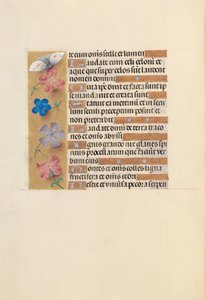 te eum om̄s stelle et lumen
Laudate eum celi celorū et
aque que super celos sūt laudent
nomen domini
Quia ipse dixit et facta sunt ip
se mandauit et creata sunt
Statuit ea in eternū et in secu
lum seculi preceptum posuit et
non preteribit
Laudate dominū de terra draco
nes et om̄s abissi
Ignis grando nix glacies spi
ritus procellarum que faciūt ver
bum eius
Montes et om̄s colles ligna
fructifera et om̄s cedri
Bestie et vniuersa pecora serpen